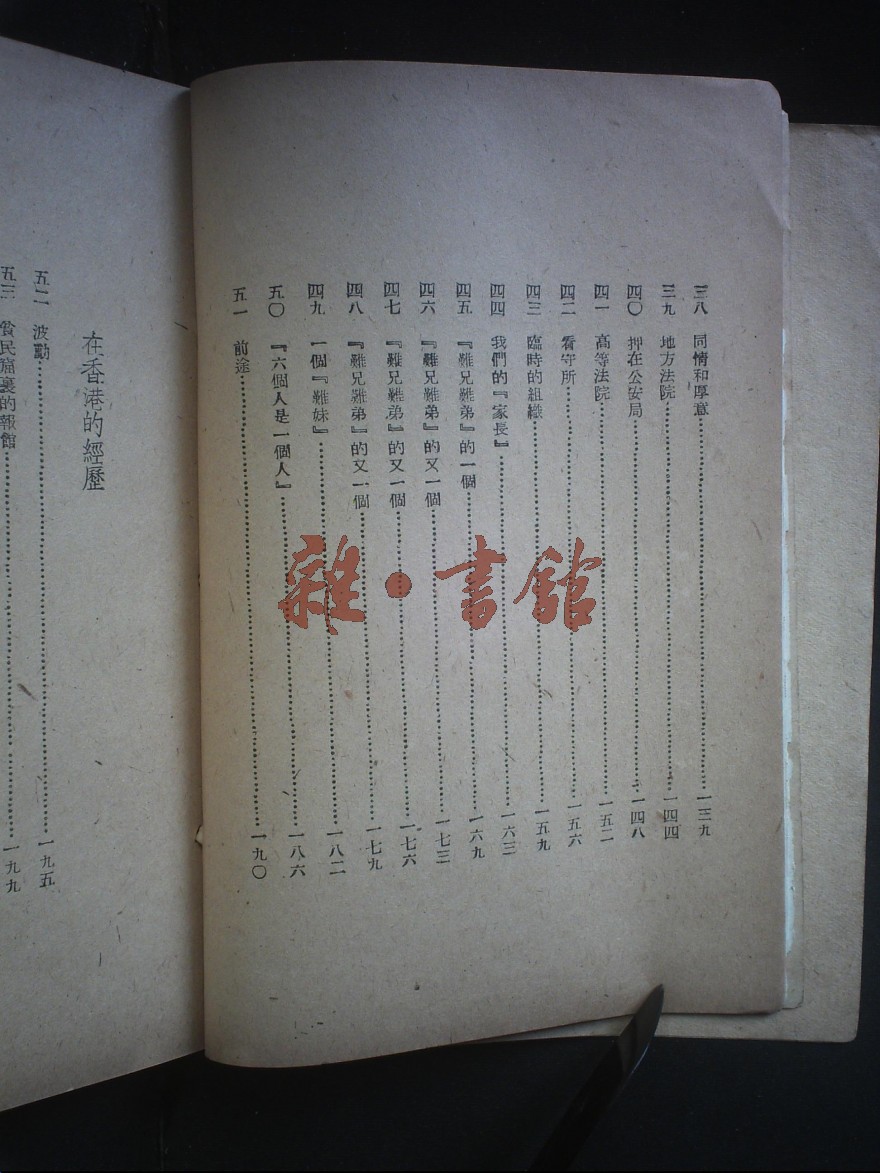 三八 同情和厚意 一三九
三九 地方法院 一四四
四〇 押在公安局 一四八
四一 高等法院 一五二
四二 看守所 一五六
四三 臨時的組織 一五九
四四 我們的『家長』 一六三
四五 『難兄難弟』的一個 一六九
四六 『難兄難弟』的又一個 一七三
四七 『難兄難弟』的又一個 一七六
四八 『難兄難弟』的又一個 一七九
四九 一個『難妹』 一八二
五〇 『六個人是一個人』 一八六
五一 前途 一九〇
在香港的經歷
五二 波動 一九五
五三 貧民窟裏的報館 一九九
雜·書館